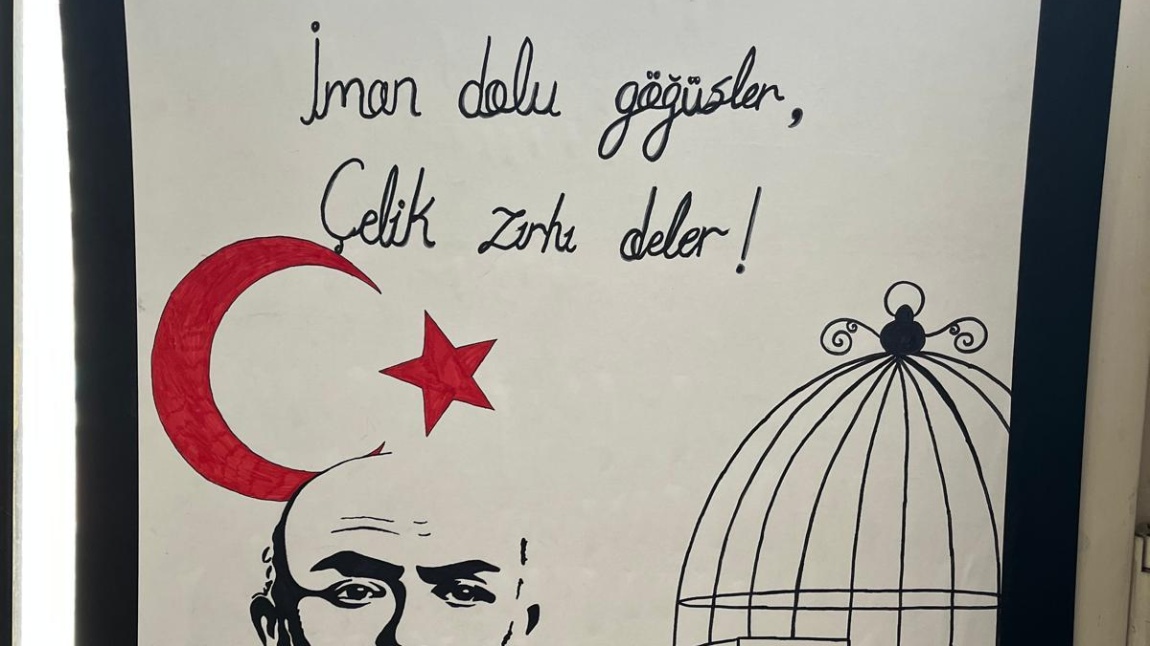 İman dolu göğüsler,
Çelik zırhı deler!